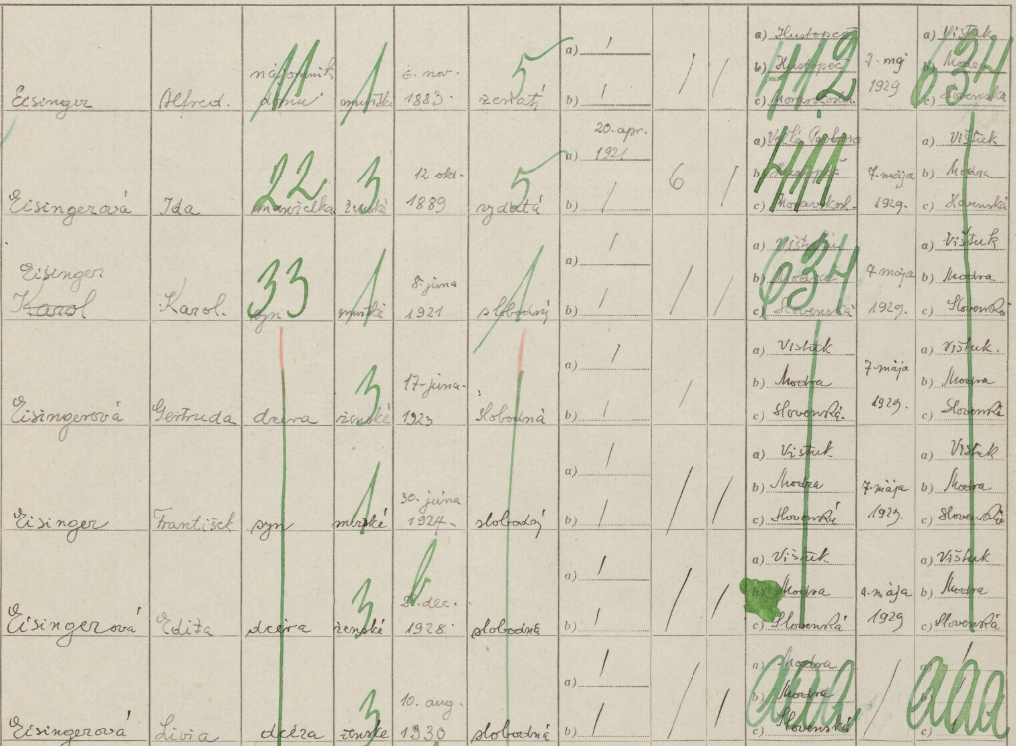 Eisinger Alfred. nájomník domu 11 mužské 1 6. nov. 1883 ženatý 5 a) / b) / / / a) Hustopeč b) Hustopeč c) 412 7. máj 1929 a) Vištuk b) Modra c) Slovenská 634
Eisingerová Ida manželka 22 ženské 3 12 okt. 1889 vydatá 5 a) 20. apr. 1921 b) / 6 / a) b) c) 411 7. mája 1929. a) Vištuk b) Modra c) Slovenská
Eisinger
Karol Karol. syn 33 mužské 1 8. júna 1921 slobodný 1 a) / b) / / / a) Vištuk b) Modra c) Slovenská 634 7. mája 1929. a) Vištuk b) Modra c) Slovenská
Eisingerová Gertruda dcéra ženské 3 17. júna. 1923 slobodná a) / b) / / a) Vištuk b) Modra c) Slovenská. 7. mája 1929. a) Vištuk. b) Modra c) Slovenská
Eisinger František syn mužské 1 30. júna 1927. slobodný a) / b) / / / a) Vištuk b) Modra c) Slovenská 7. mája 1929. a) Vištuk b) Modra c) Slovenská
Eisingerová Edita dcéra ženské 3 dec. 1928. slobodná a) / b) / / / a) Vištuk b) Modra c) Slovenská mája 1929 a) Vištuk b) Modra c) Slovenská
Eisingerová Livia dcéra ženské 3 10. aug. 1930 slobodná a) / b) / / / a) Modra b) Modra c) Slovenská aaa / a) / b) c) aaa